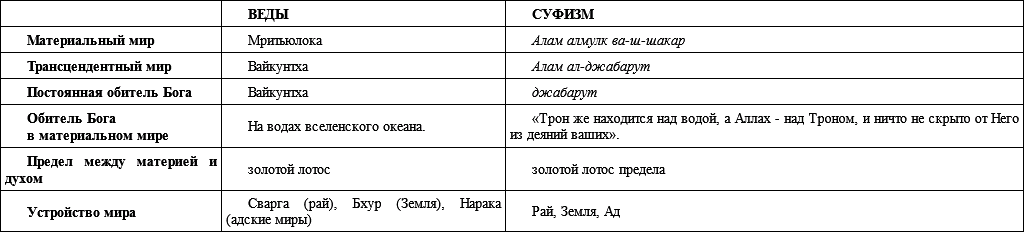 ВЕДЫ СУФИЗМ
Материальный мир Мритьюлока Алам алмулк ва-ш-шакар
Трансцендентный мир Вайкунтха Алам ал-джабарут
Постоянная обитель Бога Вайкунтха джабарут
Обитель Бога
в материальном мире
На водах вселенского океана.
«Трон же находится над водой, а Аллах - над Троном, и ничто не скрыто от Него
из деяний ваших».
Предел между материей и
духом
золотой лотос золотой лотос предела
Устройство мира
Сварга (рай), Бхур (Земля), Нарака
(адские миры)
Рай, Земля, Ад